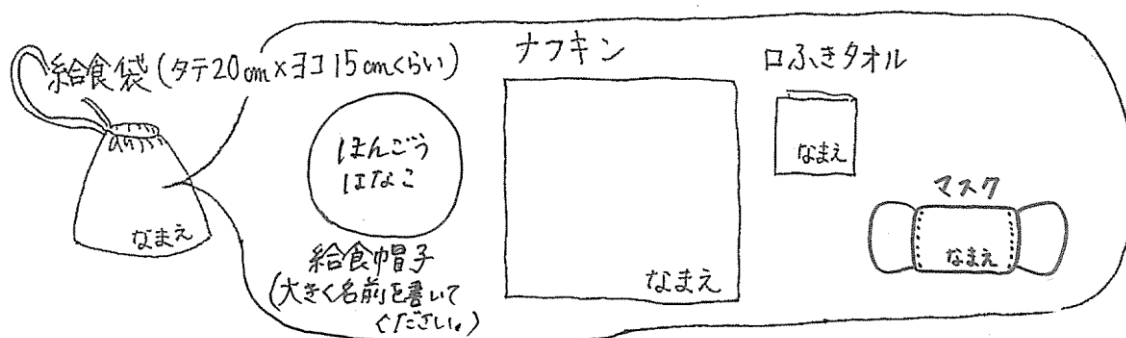 給食袋(タテ20cm×ヨコ15cmくらい)
なまえ
ほんごう
はなこ
給食帽子
(大きく名前を書いて
ください。)
ナフキン
なまえ
口ふきタオル
なまえ
マスク
なまえ